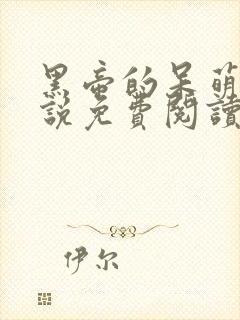 黑帝的呆萌
說免費閱讀
伊尔